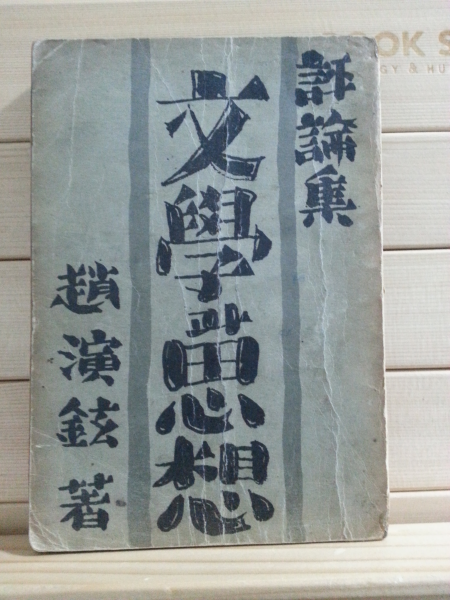 OOK S
GY & HU
評論集
文學과思想
趙演鉉 著